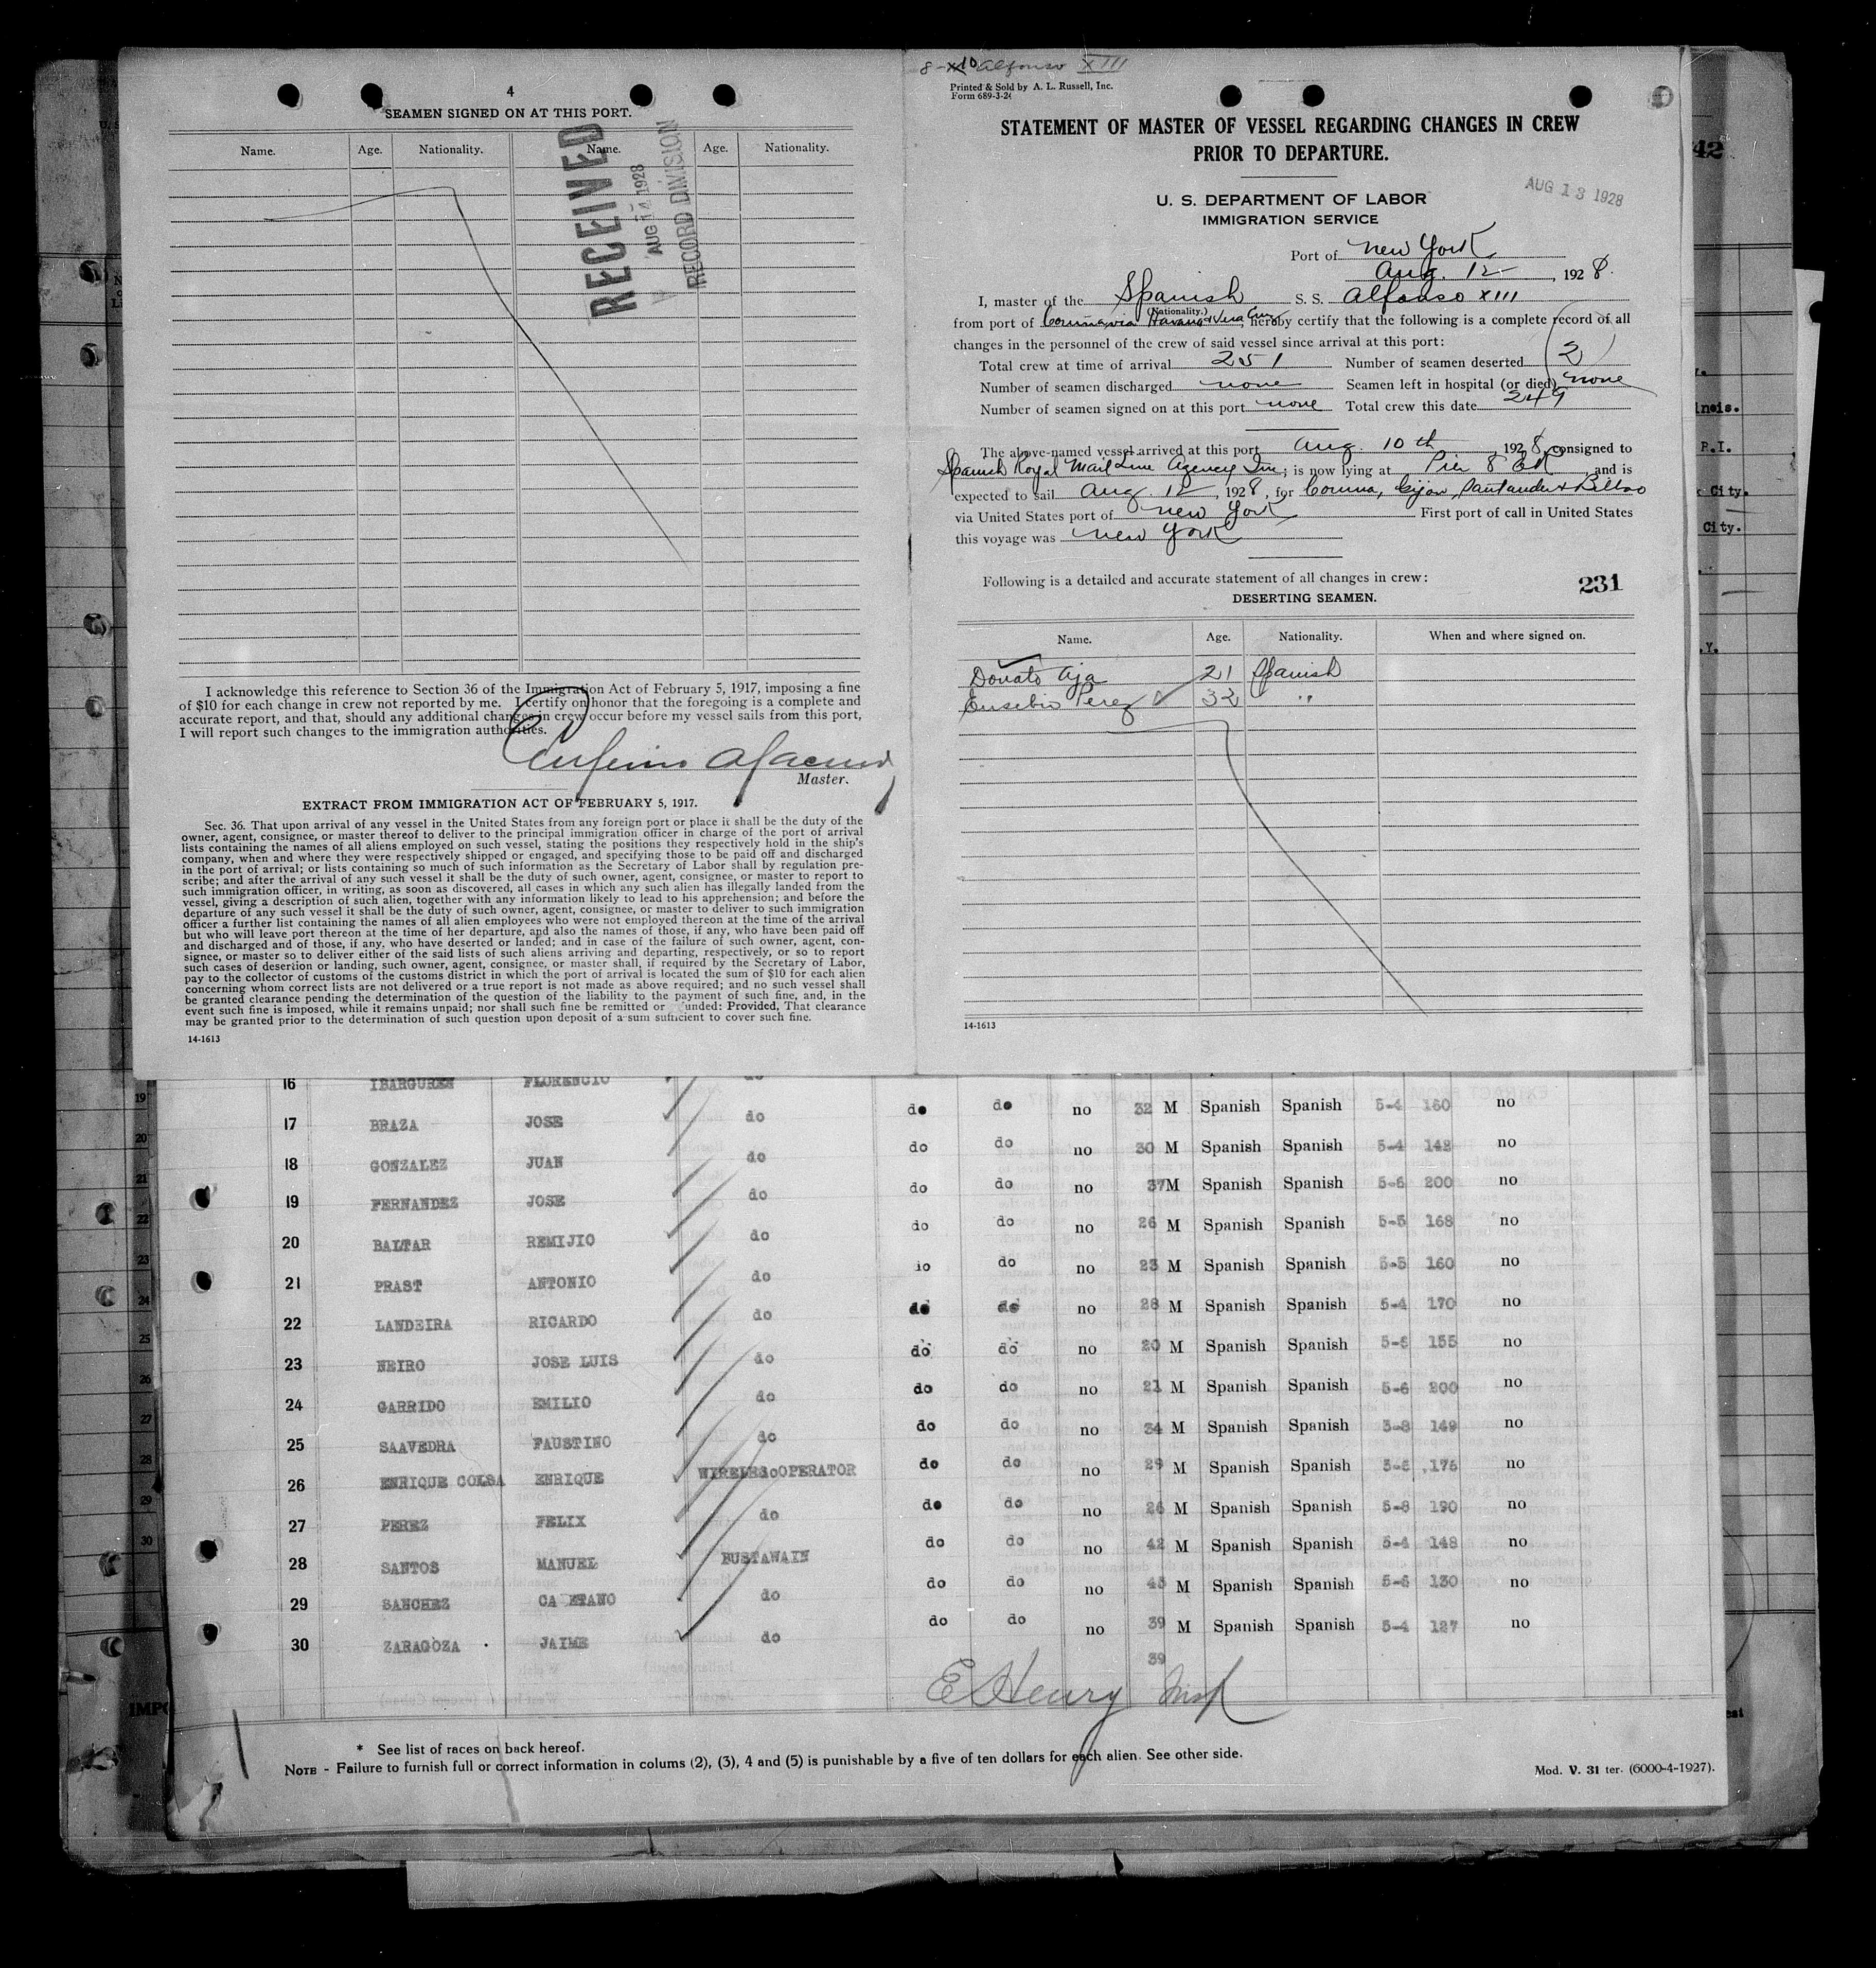 4
SEAMEN SIGNED ON AT THIS PORT.
Name. Age. Nationality. Name. Age. Nationality.
RECEIVED
AUG 14 1928
RECORD DIVISION
I acknowledge this reference to Section 36 of the Immigration Act of February 5, 1917, imposing a fine
of $10 for each change in crew not reported by me. I certify on honor that the foregoing is a complete and
accurate report, and that, should any additional changes in crew occur before my vessel sails from this port,
I will report such changes to the immigration authorities.
Master.
EXTRACT FROM IMMIGRATION ACT OF FEBRUARY 5, 1917.
Sec. 36. That upon arrival of any vessel in the United States from any foreign port or place it shall be the duty of the
owner, agent, consignee, or master thereof to deliver to the principal immigration officer in charge of the port of arrival
lists containing the names of all aliens employed on such vessel, stating the positions they respectively hold in the ship's
company, when and where they were respectively shipped or engaged, and specifying those to be paid off and discharged
in the port of arrival; or lists containing so much of such information as the Secretary of Labor shall by regulation pre-
scribe; and after the arrival of any such vessel it shall be the duty of such owner, agent, consignee, or master to report to
such immigration officer, in writing, as soon as discovered, all cases in which any such alien has illegally landed from the
vessel, giving a description of such alien, together with any information likely to lead to his apprehension; and before the
departure of any such vessel it shall be the duty of such owner, agent, consignee, or master to deliver to such immigration
officer a further list containing the names of all alien employees who were not employed thereon at the time of the arrival
but who will leave port thereon at the time of her departure, and also the names of those, if any, who have been paid off
and discharged and of those, if any, who have deserted or landed; and in case of the failure of such owner, agent, con-
signee, or master so to deliver either of the said lists of such aliens arriving and departing, respectively, or so to report
such cases of desertion or landing, such owner, agent, consignee, or master shall, if required by the Secretary of Labor,
pay to the collector of customs of the customs district in which the port of arrival is located the sum of $10 for each alien
concerning whom correct lists are not delivered or a true report is not made as above required; and no such vessel shall
be granted clearance pending the determination of the question of the liability to the payment of such fine, and, in the
event such fine is imposed, while it remains unpaid; nor shall such fine be remitted or unded: Provided, That clearance
may be granted prior to the determination of such question upon deposit of a sum sufficient to cover such fine.
14-1613
8-10 Alfonso XIII
Printed & Sold by A. L. Russell, Inc.
Form 689-3-26
STATEMENT OF MASTER OF VESSEL REGARDING CHANGES IN CREW
PRIOR TO DEPARTURE.
U. S. DEPARTMENT OF LABOR
IMMIGRATION SERVICE
AUG 13 1928
Port of New York
Aug. 12 , 1928.
I, master of the Spanish S. S. Alfonso XIII
(Nationality.)
from port of Coruna via Havana & Vera Cruz, hereby certify that the following is a complete record of all
changes in the personnel of the crew of said vessel since arrival at this port:
Total crew at time of arrival 251 Number of seamen deserted 2
Number of seamen discharged none Seamen left in hospital (or died) none
Number of seamen signed on at this port none Total crew this date 249
The above-named vessel arrived at this port Aug. 10th , 1928, consigned to
Spanish Royal Mail Line Agency Inc; is now lying at Pier 8 ER and is
expected to sail Aug. 12 , 1928, for Coruna, Gijon, Santander & Bilbao
via United States port of New York First port of call in United States
this voyage was New York
Following is a detailed and accurate statement of all changes in crew:
231
DESERTING SEAMEN.
Name. Age. Nationality. When and where signed on.
Donato Aja 21 Spanish
Eusebio Perez 32 "
14-1613
16 IBARGUREN FLORENCIO do
17 BRAZA JOSE do do do no 32 M Spanish Spanish 5-4 160 no
18 GONZALEZ JUAN do do do no 30 M Spanish Spanish 5-4 148 no
19 FERNANDEZ JOSE do do do no 37 M Spanish Spanish 5-6 200 no
20 BALTAR REMIJIO do do do no 26 M Spanish Spanish 5-5 168 no
21 PRAST ANTONIO do do do no 23 M Spanish Spanish 5-5 160 no
22 LANDEIRA RICARDO do do do no 28 M Spanish Spanish 5-4 170 no
23 NEIRO JOSE LUIS do do do no 20 M Spanish Spanish 5-6 155 no
24 GARRIDO EMILIO do do do no 21 M Spanish Spanish 5-6 200 no
25 SAAVEDRA FAUSTINO do do do no 34 M Spanish Spanish 5-8 149 no
26 ENRIQUE COLSA ENRIQUE WIRELES OPERATOR do do no 29 M Spanish Spanish 176 no
27 PEREZ FELIX do do do no 26 M Spanish Spanish 5-8 190 no
28 SANTOS MANUEL BUSTAWAIN do do no 42 M Spanish Spanish 5-4 148 no
29 SANCHEZ CA ETANO do do do no 45 M Spanish Spanish 5-5 130 no
30 ZARAGOZA JAIME do do do no 39 M Spanish Spanish 5-4 127 no
39
E Henry Insp
* See list of races on back hereof.
NOTE - Failure to furnish full or correct information in colums (2), (3), 4 and (5) is punishable by a five of ten dollars for each alien. See other side.
Mod. V. 31 ter. (6000-4-1927).